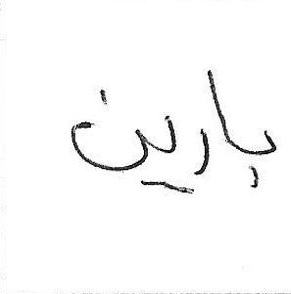 بارین